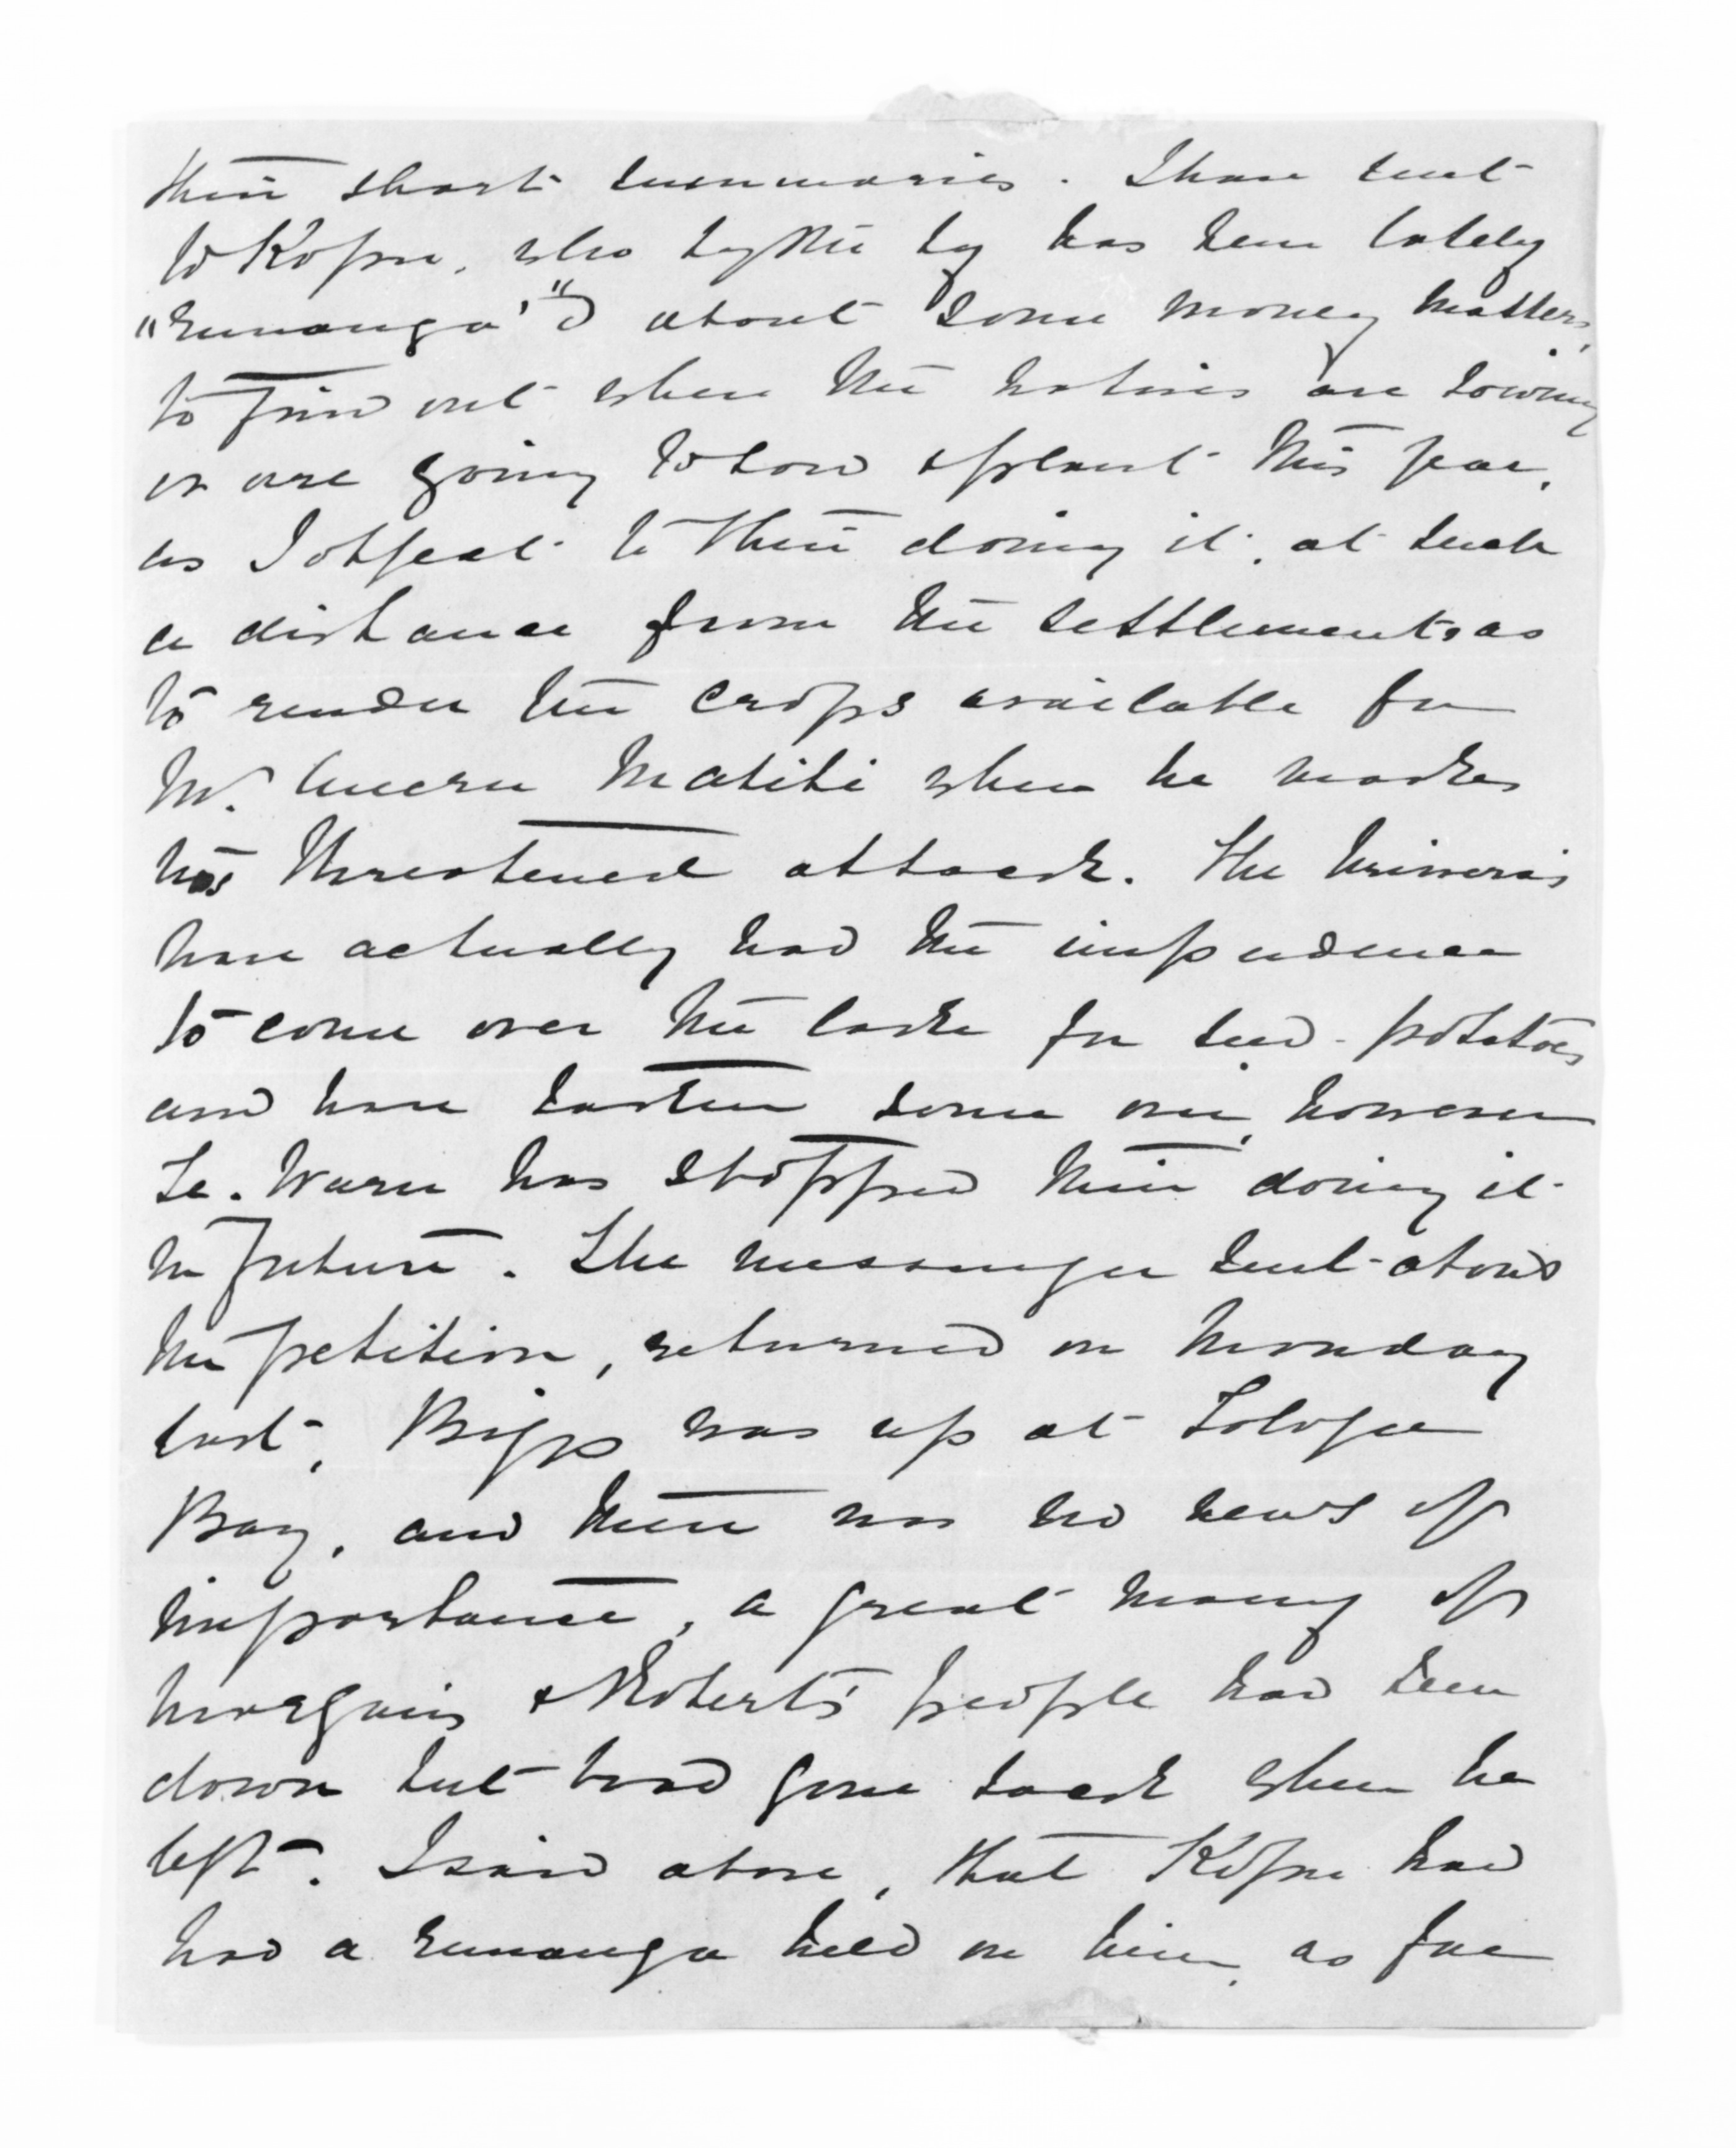 their short summaries. I have sent
to Kopu, who by the by has been lately
"runanga'"d about some money matters,
to find out where the natives are sowing
or are going to sow & plant this year,
as I object to their doing it, at such
a distance from the settlements, as
to render the crops available for
Mr. Anaru Matiti when he makes
his threatened attack. The
have actually had the impudence
to come over the lake for seed-potatoes
and have taken some over, however
Te. Waru has stopped their doing it
in future. The messenger sent about
the petition, returned on Monday
last, Biggs was up at Tologa
Bay, and there was no news of
importance, a great many of
Morgan's & Roberts' people had been
down but had gone back when he
left. I said above, that Kopu had
had a runanga held on him, as far